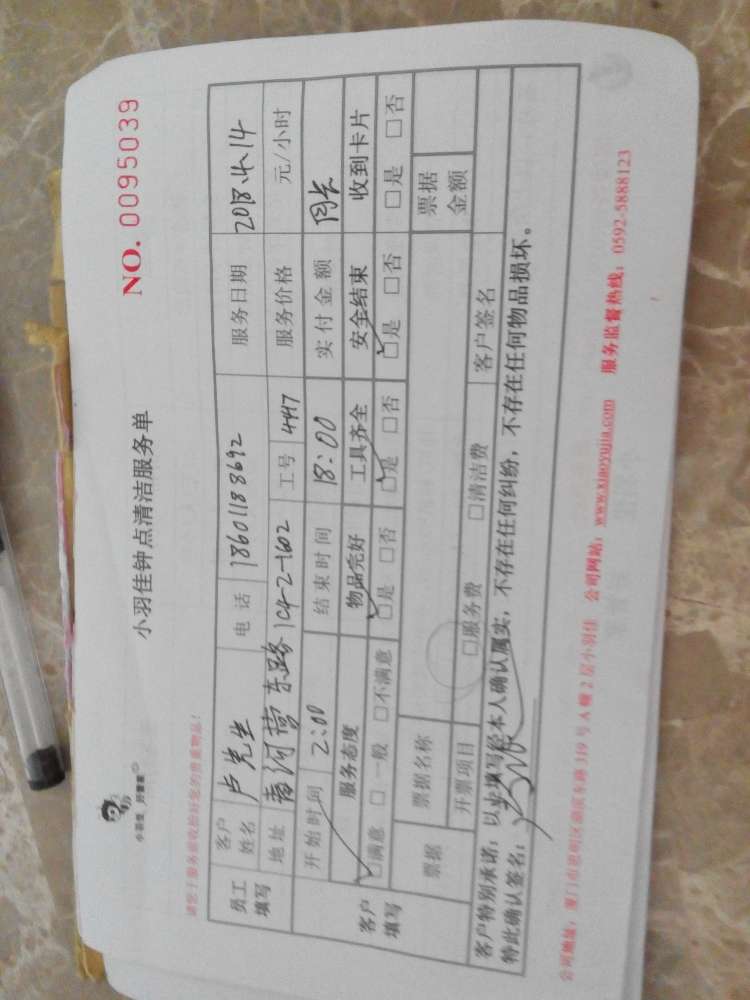 小羽佳 好管家
小羽佳钟点清洁服务单
NO. 0095039
员工填写
客户姓名 卢先生 电话 18601183692 服务日期 2018.4.14
地址 东路 104-2-1602 工号 4417 服务价格 元/小时
开始时间 2:00 结束时间 18:00 实付金额
客户填写
服务态度 物品完好 工具齐全 安全结束 收到卡片
☑满意 □一般 □不满意 ☑是 □否 ☑是 □否 ☑是 □否 □是 □否
票据 票据名称 票据金额
开票项目 □服务费 □清洁费 客户签名
客户特别承诺：以上填写经本人确认属实，不存在任何纠纷，不存在任何物品损坏。
特此确认签名：
公司地址：厦门市思明区湖滨东路 319 号 A 幢 2 层小羽佳 公司网站：www.xiaoyujia.com 服务监督热线：0592-5888123